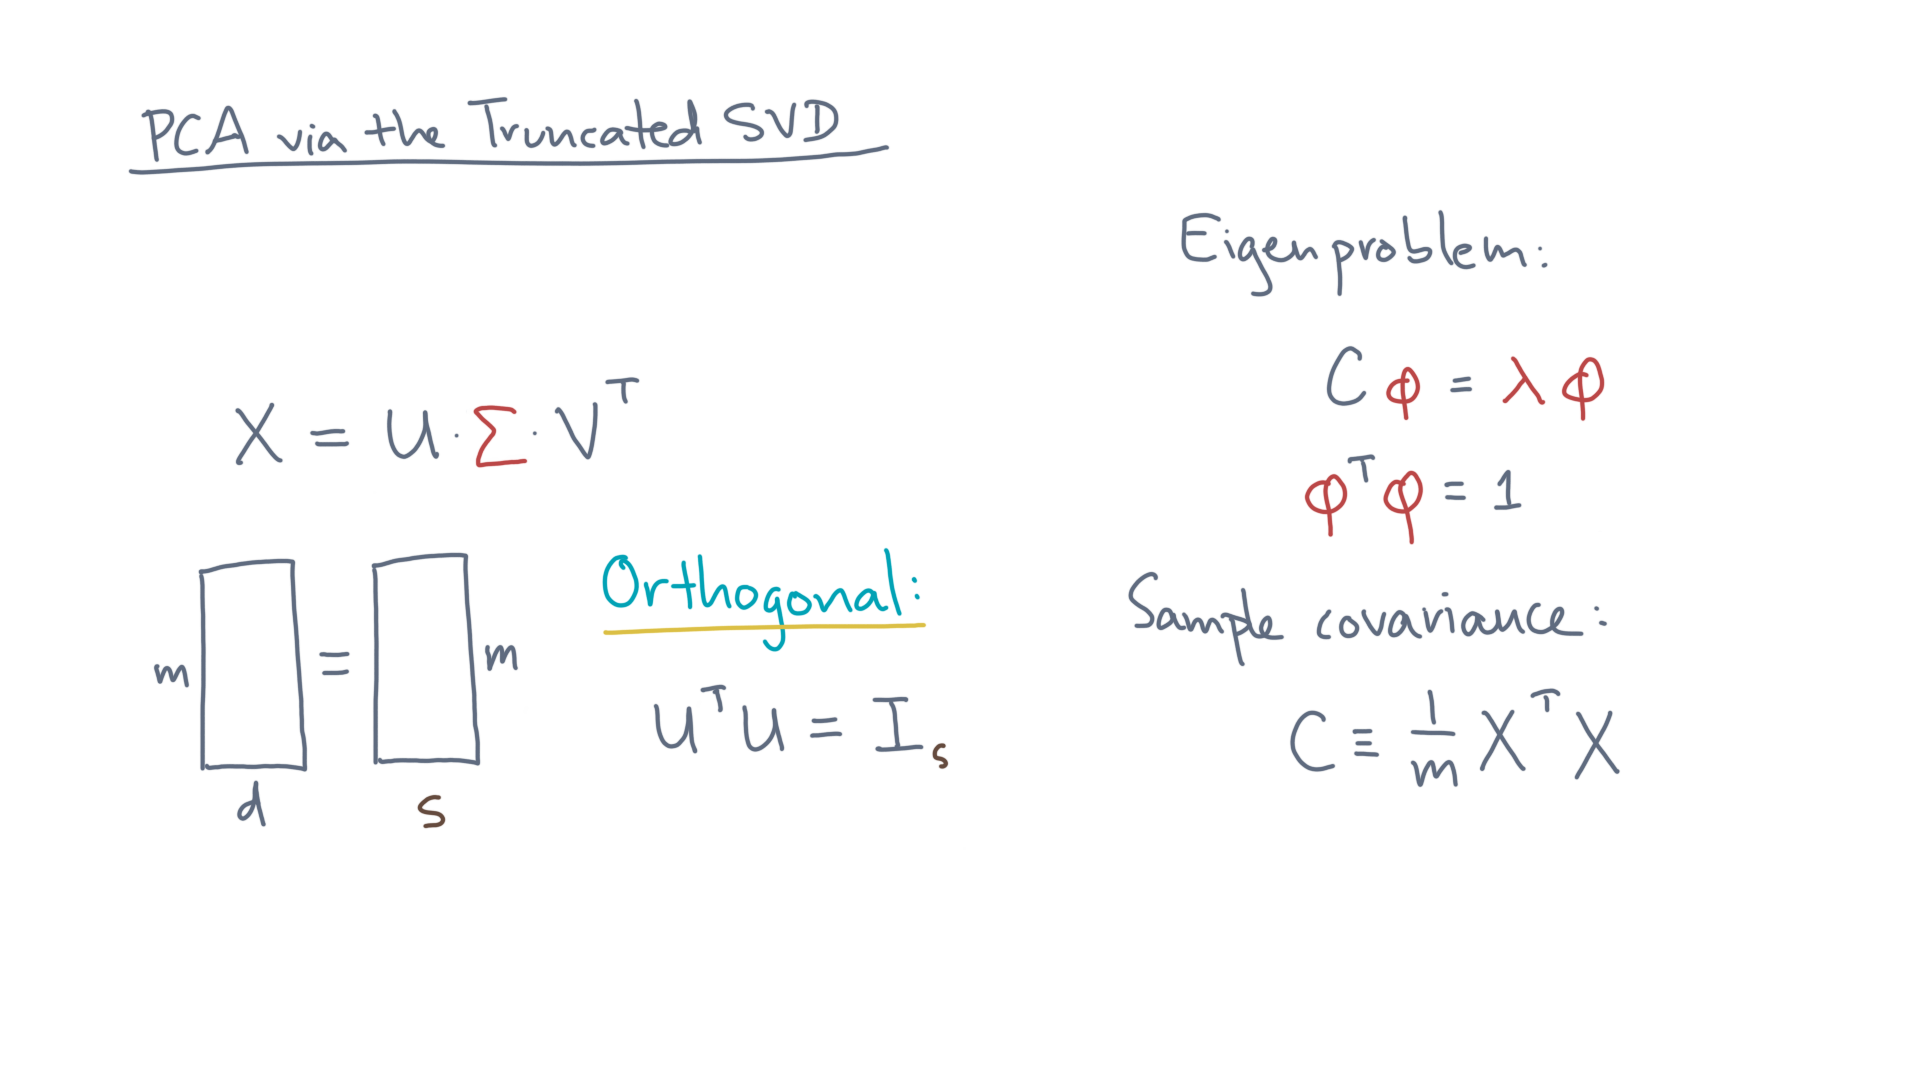 PCA via the Truncated SVD
X = U · Σ · Vᵀ
m = m
d s
Orthogonal:
UᵀU = Iₛ
Eigenproblem:
C φ = λ φ
φᵀφ = 1
Sample covariance:
C ≡ 1/m XᵀX